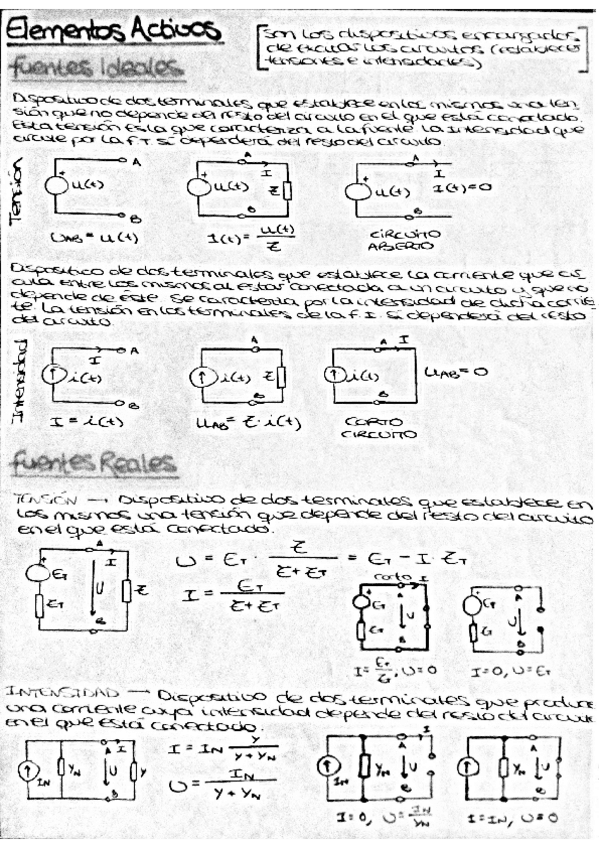 Elementos Activos
[Son los dispositivos encargados
de excitar los circuitos (establecer
tensiones e intensidades)]
fuentes Ideales
Dispositivo de dos terminales que establece en los mismos una ten-
sión que no depende del resto del circuito en el que está conectado.
Esta tensión es la que caracteriza a la fuente. La Intensidad que
circule por la f.T. sí dependerá del resto del circuito.
Tensión
+ u(t) A B
UAB = u(t)
+ u(t) A I Z B
I(t) = u(t)/Z
+ u(t) A I I(t)=0 B
CIRCUITO
ABIERTO
Dispositivo de dos terminales que establece la corriente que cir
cula entre los mismos al estar conectada a un circuito y que no
depende de éste. Se caracteriza por la intensidad de dicha corrien-
te. La tensión en los terminales de la f.I. sí dependerá del resto
del circuito.
Intensidad
i(t) I A B
I = i(t)
i(t) A Z B
UAB = Z·i(t)
i(t) A I B UAB = 0
CORTO
CIRCUITO
fuentes Reales
TENSIÓN → Dispositivo de dos terminales que establece en
los mismos una tensión que depende del resto del circuito
en el que está conectado.
+ ET ZT A I U Z B
U = ET · Z/(Z+ZT) = ET - I·ZT
I = ET/(Z+ZT)
corto I
A U B
I = ET/ZT, U=0
A U B
I=0, U=ET
INTENSIDAD → Dispositivo de dos terminales que produce
una corriente cuya intensidad depende del resto del circuito
en el que está conectado.
IN YN A I U Y B
I = IN Y/(Y+YN)
U = IN/(Y+YN)
IN YN A I U B
I=0, U=IN/YN
IN YN A U B
I=IN, U=0